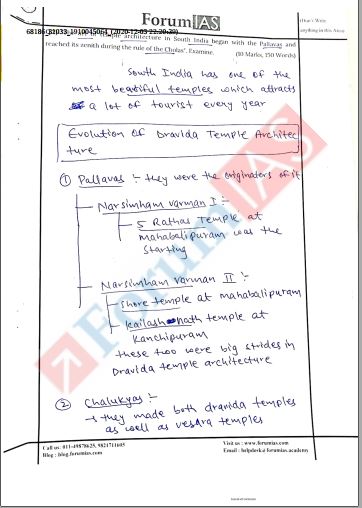 ForumIAS
(Don't Write
anything in this Area)
68186_82033_1910045064 (2020-12-03 22:20:39)
temple architecture in South India began with the Pallavas and
reached its zenith during the rule of the Cholas". Examine.
(10 Marks, 150 Words)
South India has one of the
most beautiful temples which attracts
a lot of tourist every year
Evolution Of Dravida Temple Architec
ture
① Pallavas :- they were the originators of it
Narsimham varman I :-
5 Rathas Temple at
mahabalipuram was the
starting
Narsimham varman II :-
Shore temple at mahabalipuram
kailash nath temple at
Kanchipuram
these two were big strides in
Dravida temple architecture
② Chalukyas :-
→ they made both dravida temples
as well as vesara temples
ForumIAS
Call us: 011-49878625, 9821711605
Blog : blog.forumias.com
Visit us : www.forumias.com
Email : helpdesk@forumias.academy